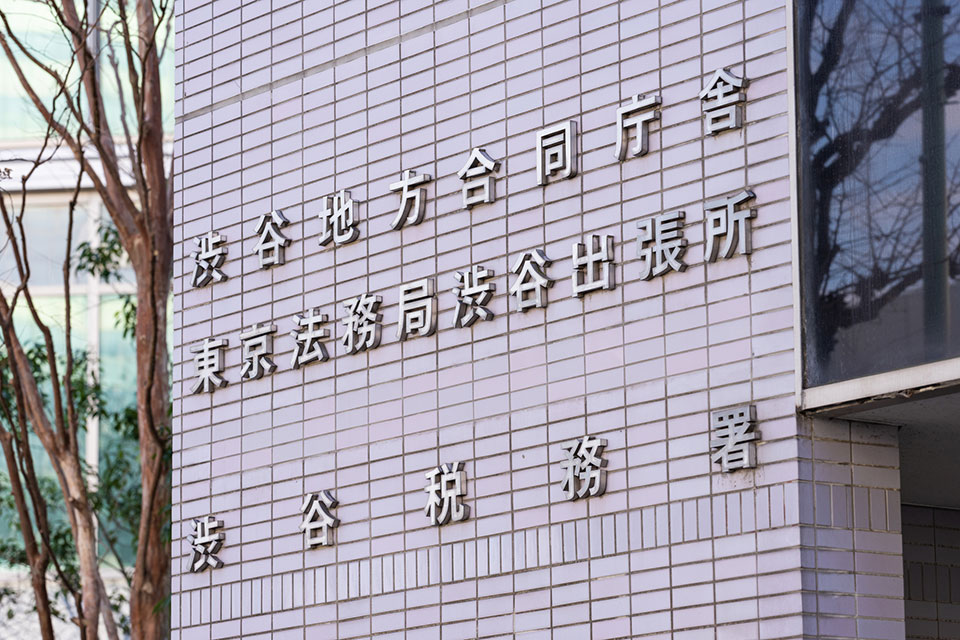 渋谷地方合同庁舎
東京法務局渋谷出張所
渋谷税務署